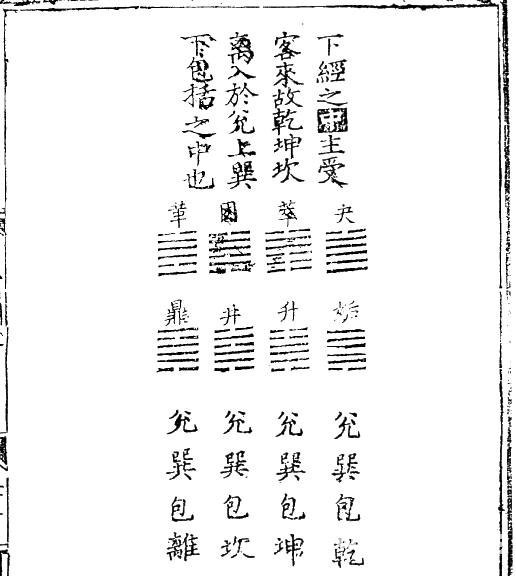 下經之中主受
客來故乾坤坎
离入於兊上巽
下包括之中也
夬
萃
困
革
姤
升
井
鼎
兊巽包乾
兊巽包坤
兊巽包坎
兊巽包離